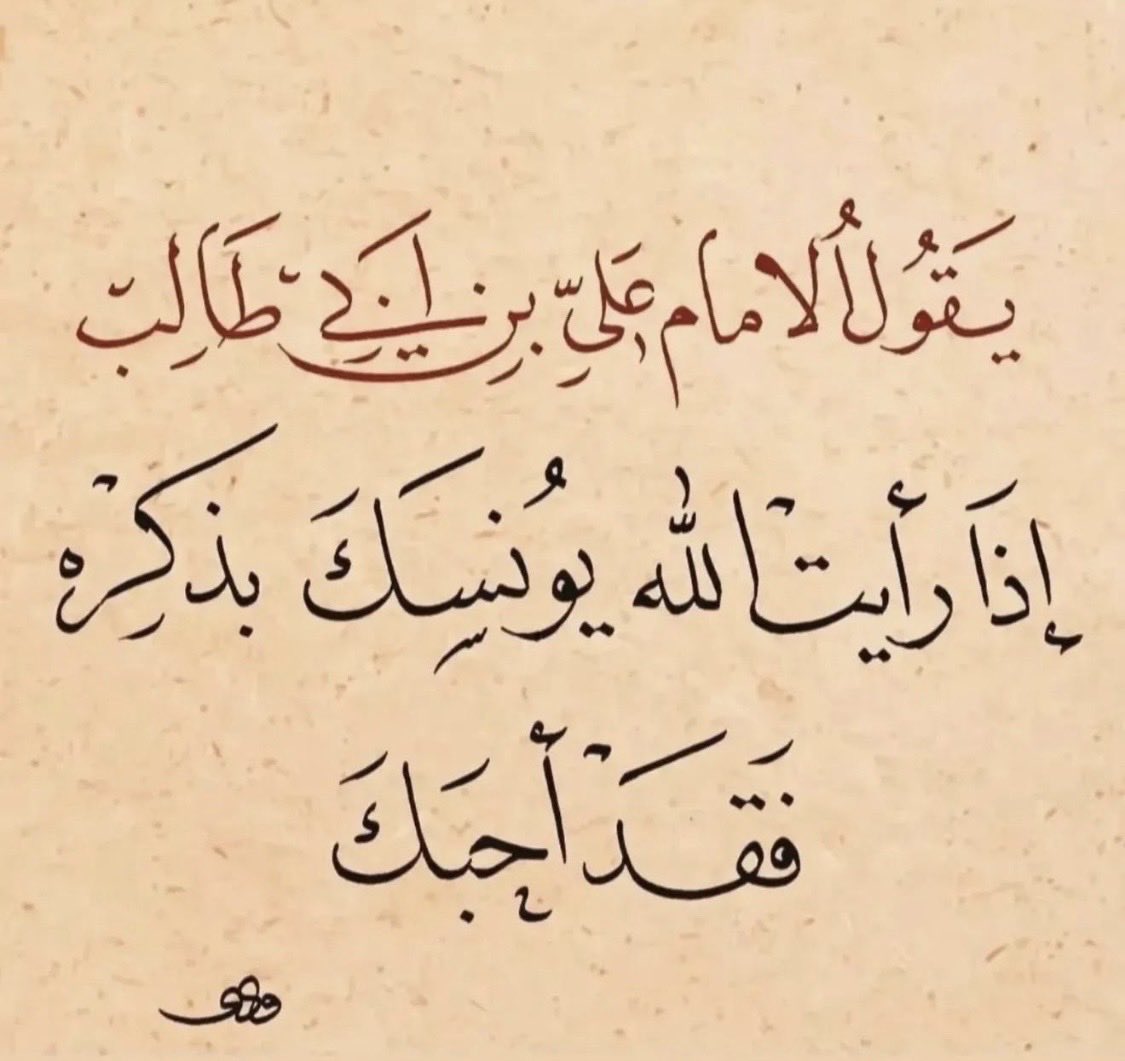 يَقُولُ الامام عَليِّ بنِ ابَي طَالِب
إذَا رأيتْ الله يُونسِكَ بذكِرْه
فَقَدَْ أحبَكَ